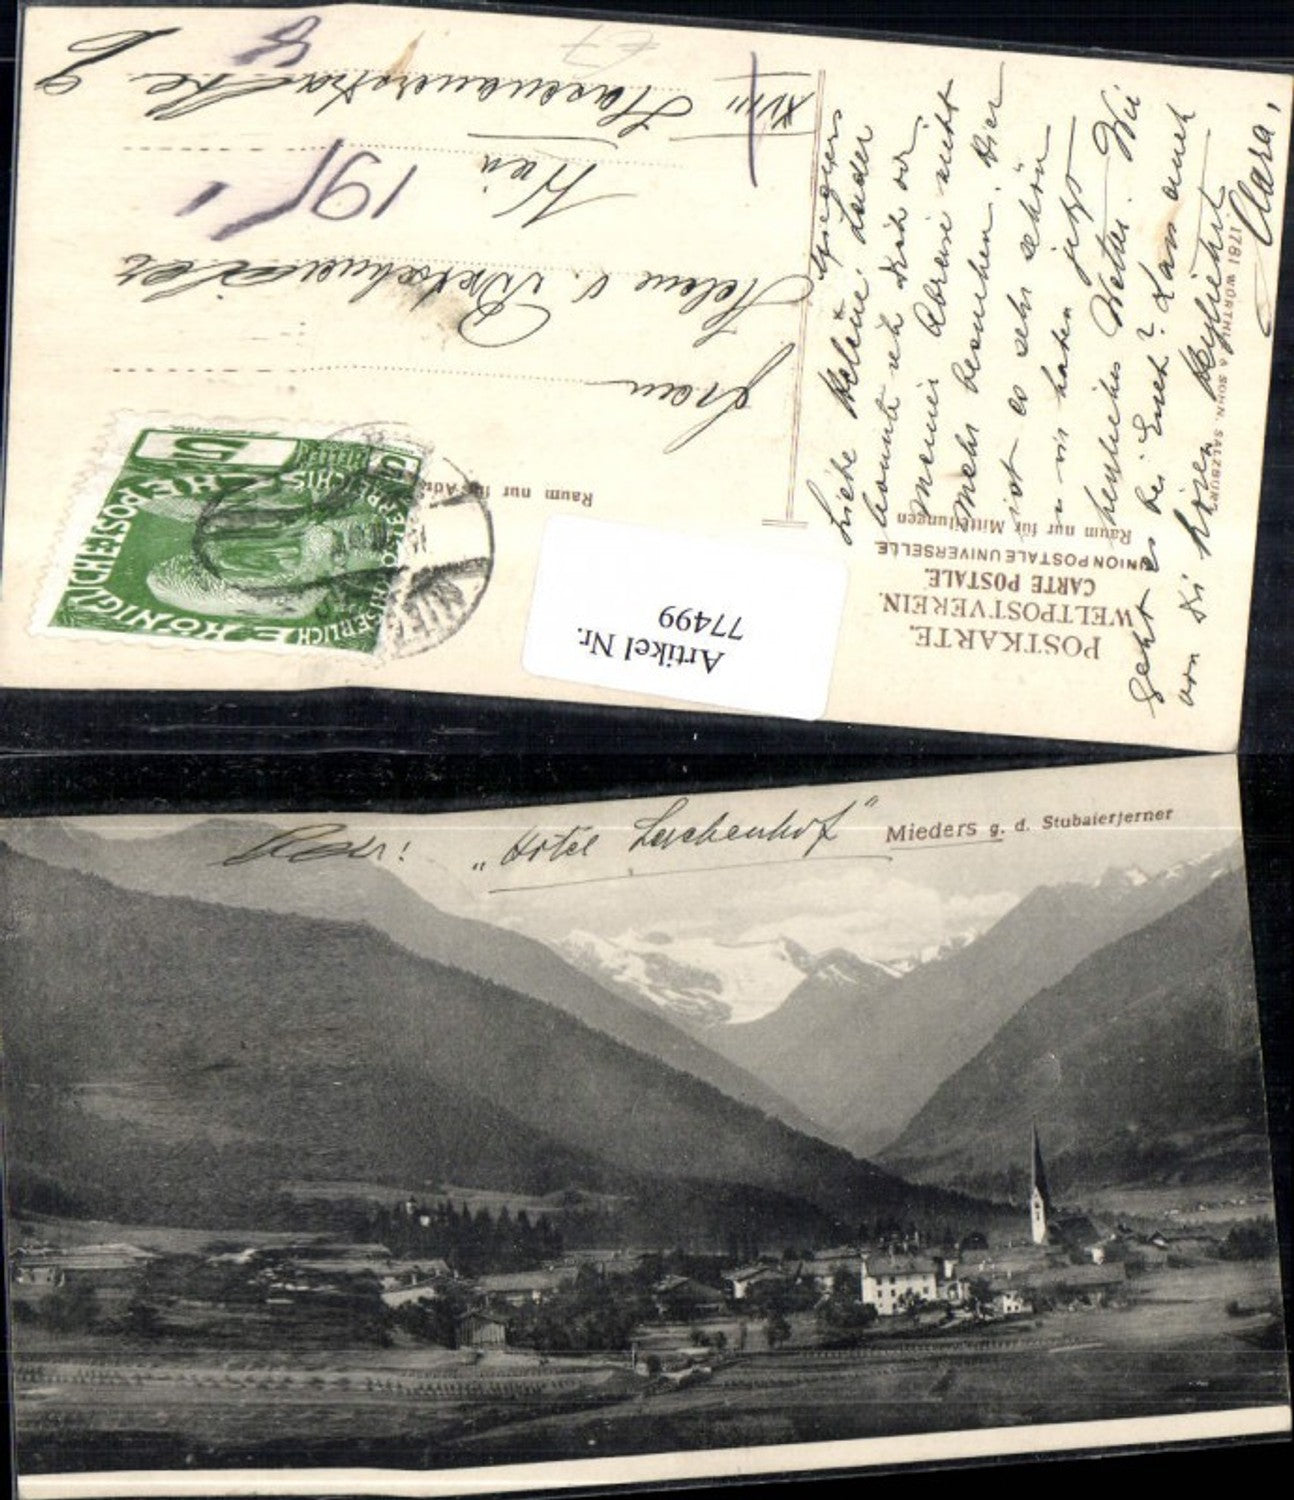 POSTKARTE.
WELTPOSTVEREIN.
CARTE POSTALE.
UNION POSTALE UNIVERSELLE
Raum nur für Mitteilungen
Raum nur für
1781 WÜRTHLE & SOHN, SALZBURG.
Artikel Nr.
77499
KAISERLICHE KÖNIGLICHE
ÖSTERREICHISCHE POST
5
HELLER
Frau
Helene v.
Wien
XVIII Hasenauerstraße 8
191
Liebe Helene! Leider
konnte ich Dich vor
meiner Abreise nicht
mehr besuchen. Hier
ist es sehr schön
u wir haben jetzt
herrliches Wetter. Wie
geht es bei Euch? Lass auch
von Dir hören. Herzlichst
Clara,
Adr: "Hotel Lerchenhof"
Mieders g. d. Stubaierferner